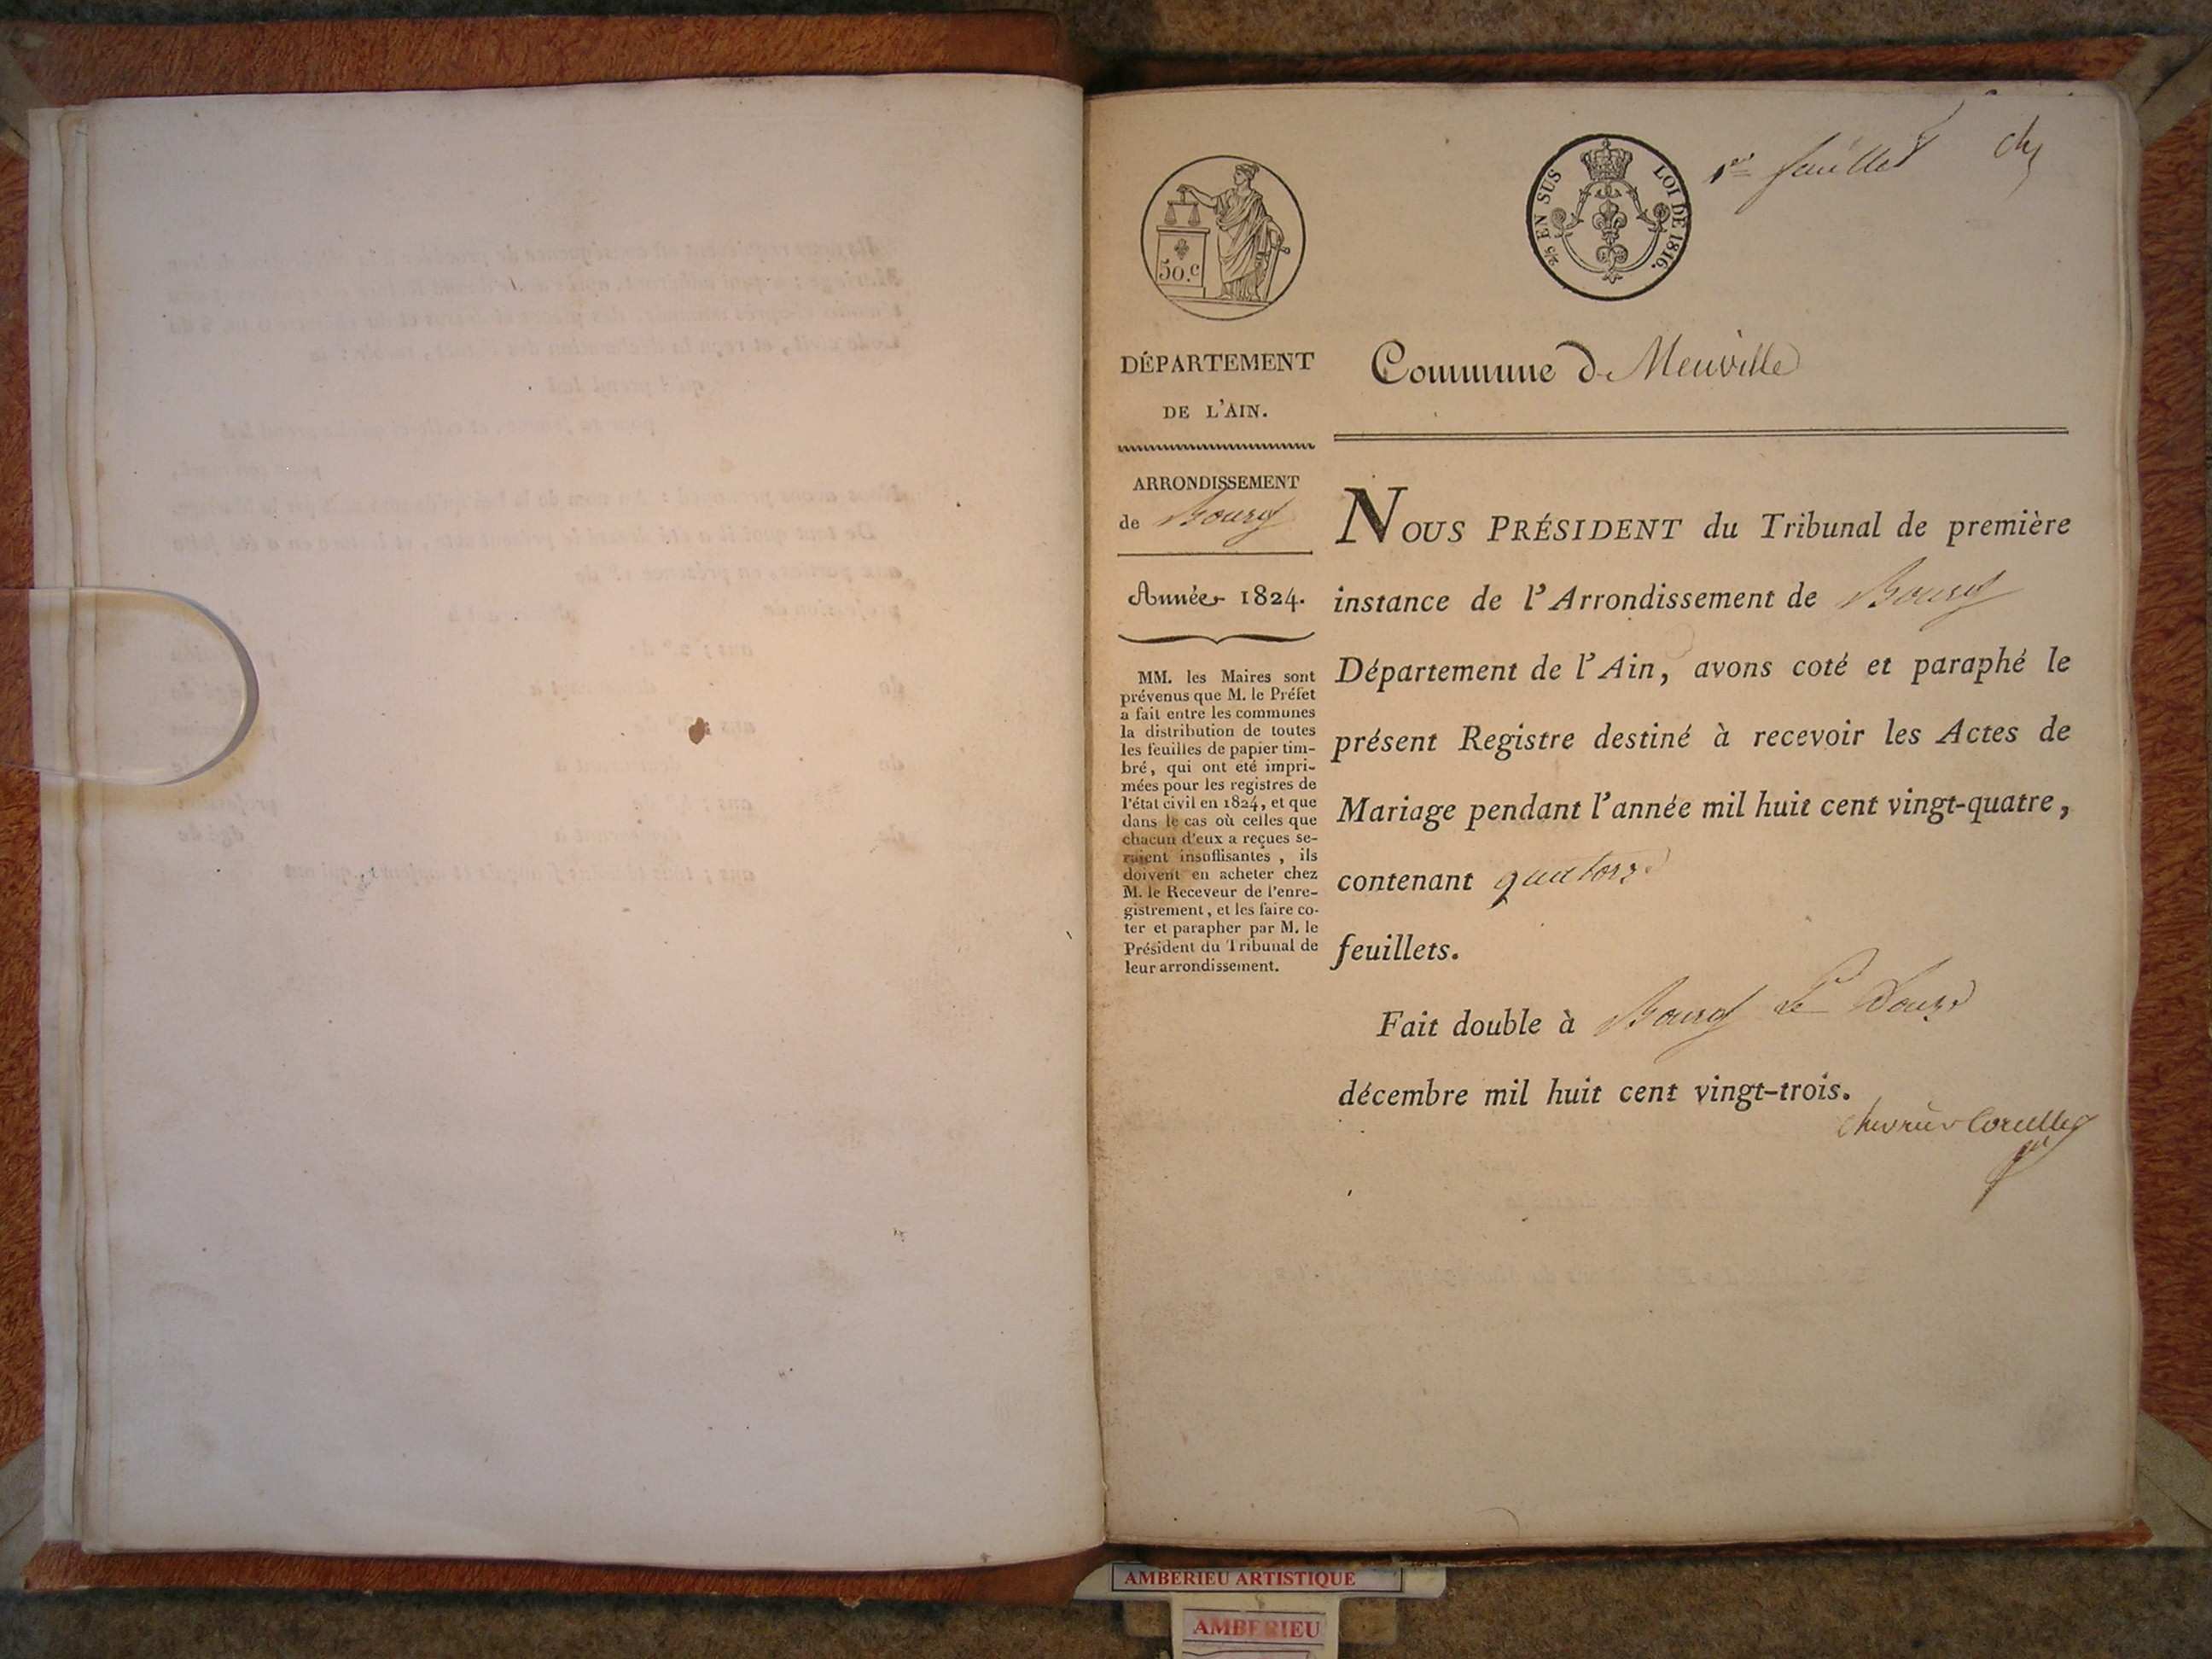 1er feuillet
50.c
2/5 EN SUS LOI DE 1816.
DÉPARTEMENT
DE L'AIN.
ARRONDISSEMENT
de Bourg
Année 1824.
MM. les Maires sont
prévenus que M. le Préfet
a fait entre les communes
la distribution de toutes
les feuilles de papier tim-
bré, qui ont été impri-
mées pour les registres de
l'état civil en 1824, et que
dans le cas où celles que
chacun d'eux a reçues se-
raient insuffisantes, ils
doivent en acheter chez
M. le Receveur de l'enre-
gistrement, et les faire co-
ter et parapher par M. le
Président du Tribunal de
leur arrondissement.
Commune d
NOUS PRÉSIDENT du Tribunal de première
instance de l'Arrondissement de Bourg
Département de l'Ain, avons coté et paraphé le
présent Registre destiné à recevoir les Actes de
Mariage pendant l'année mil huit cent vingt-quatre,
contenant quatorze
feuillets.
Fait double à Bourg Le Douze
décembre mil huit cent vingt-trois.
AMBERIEU ARTISTIQUE
AMBERIEU